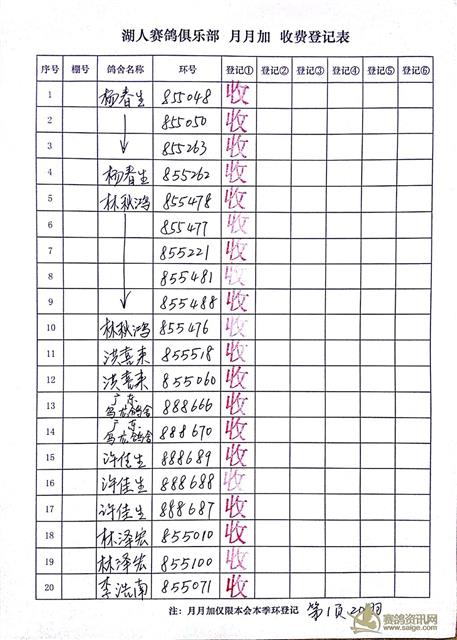 湖人赛鸽俱乐部 月月加 收费登记表
序号 棚号 鸽舍名称 环号 登记① 登记② 登记③ 登记④ 登记⑤ 登记⑥
1 杨春生 855048 收
2 855050 收
3 855263 收
4 杨春生 855262 收
5 林秋鸿 855478 收
6 855477 收
7 855221 收
8 855481 收
9 855488 收
10 林秋鸿 855476 收
11 洪喜来 855518 收
12 洪喜来 855060 收
13 广东乌龙鸽舍 888666 收
14 广东乌龙鸽舍 888670 收
15 许佳生 888689 收
16 许佳生 888688 收
17 许佳生 888687 收
18 林泽宏 855010 收
19 林泽宏 855100 收
20 李浩南 855071 收
注：月月加仅限本会本季环登记 第1页20羽
赛鸽资讯网
www.saige.com